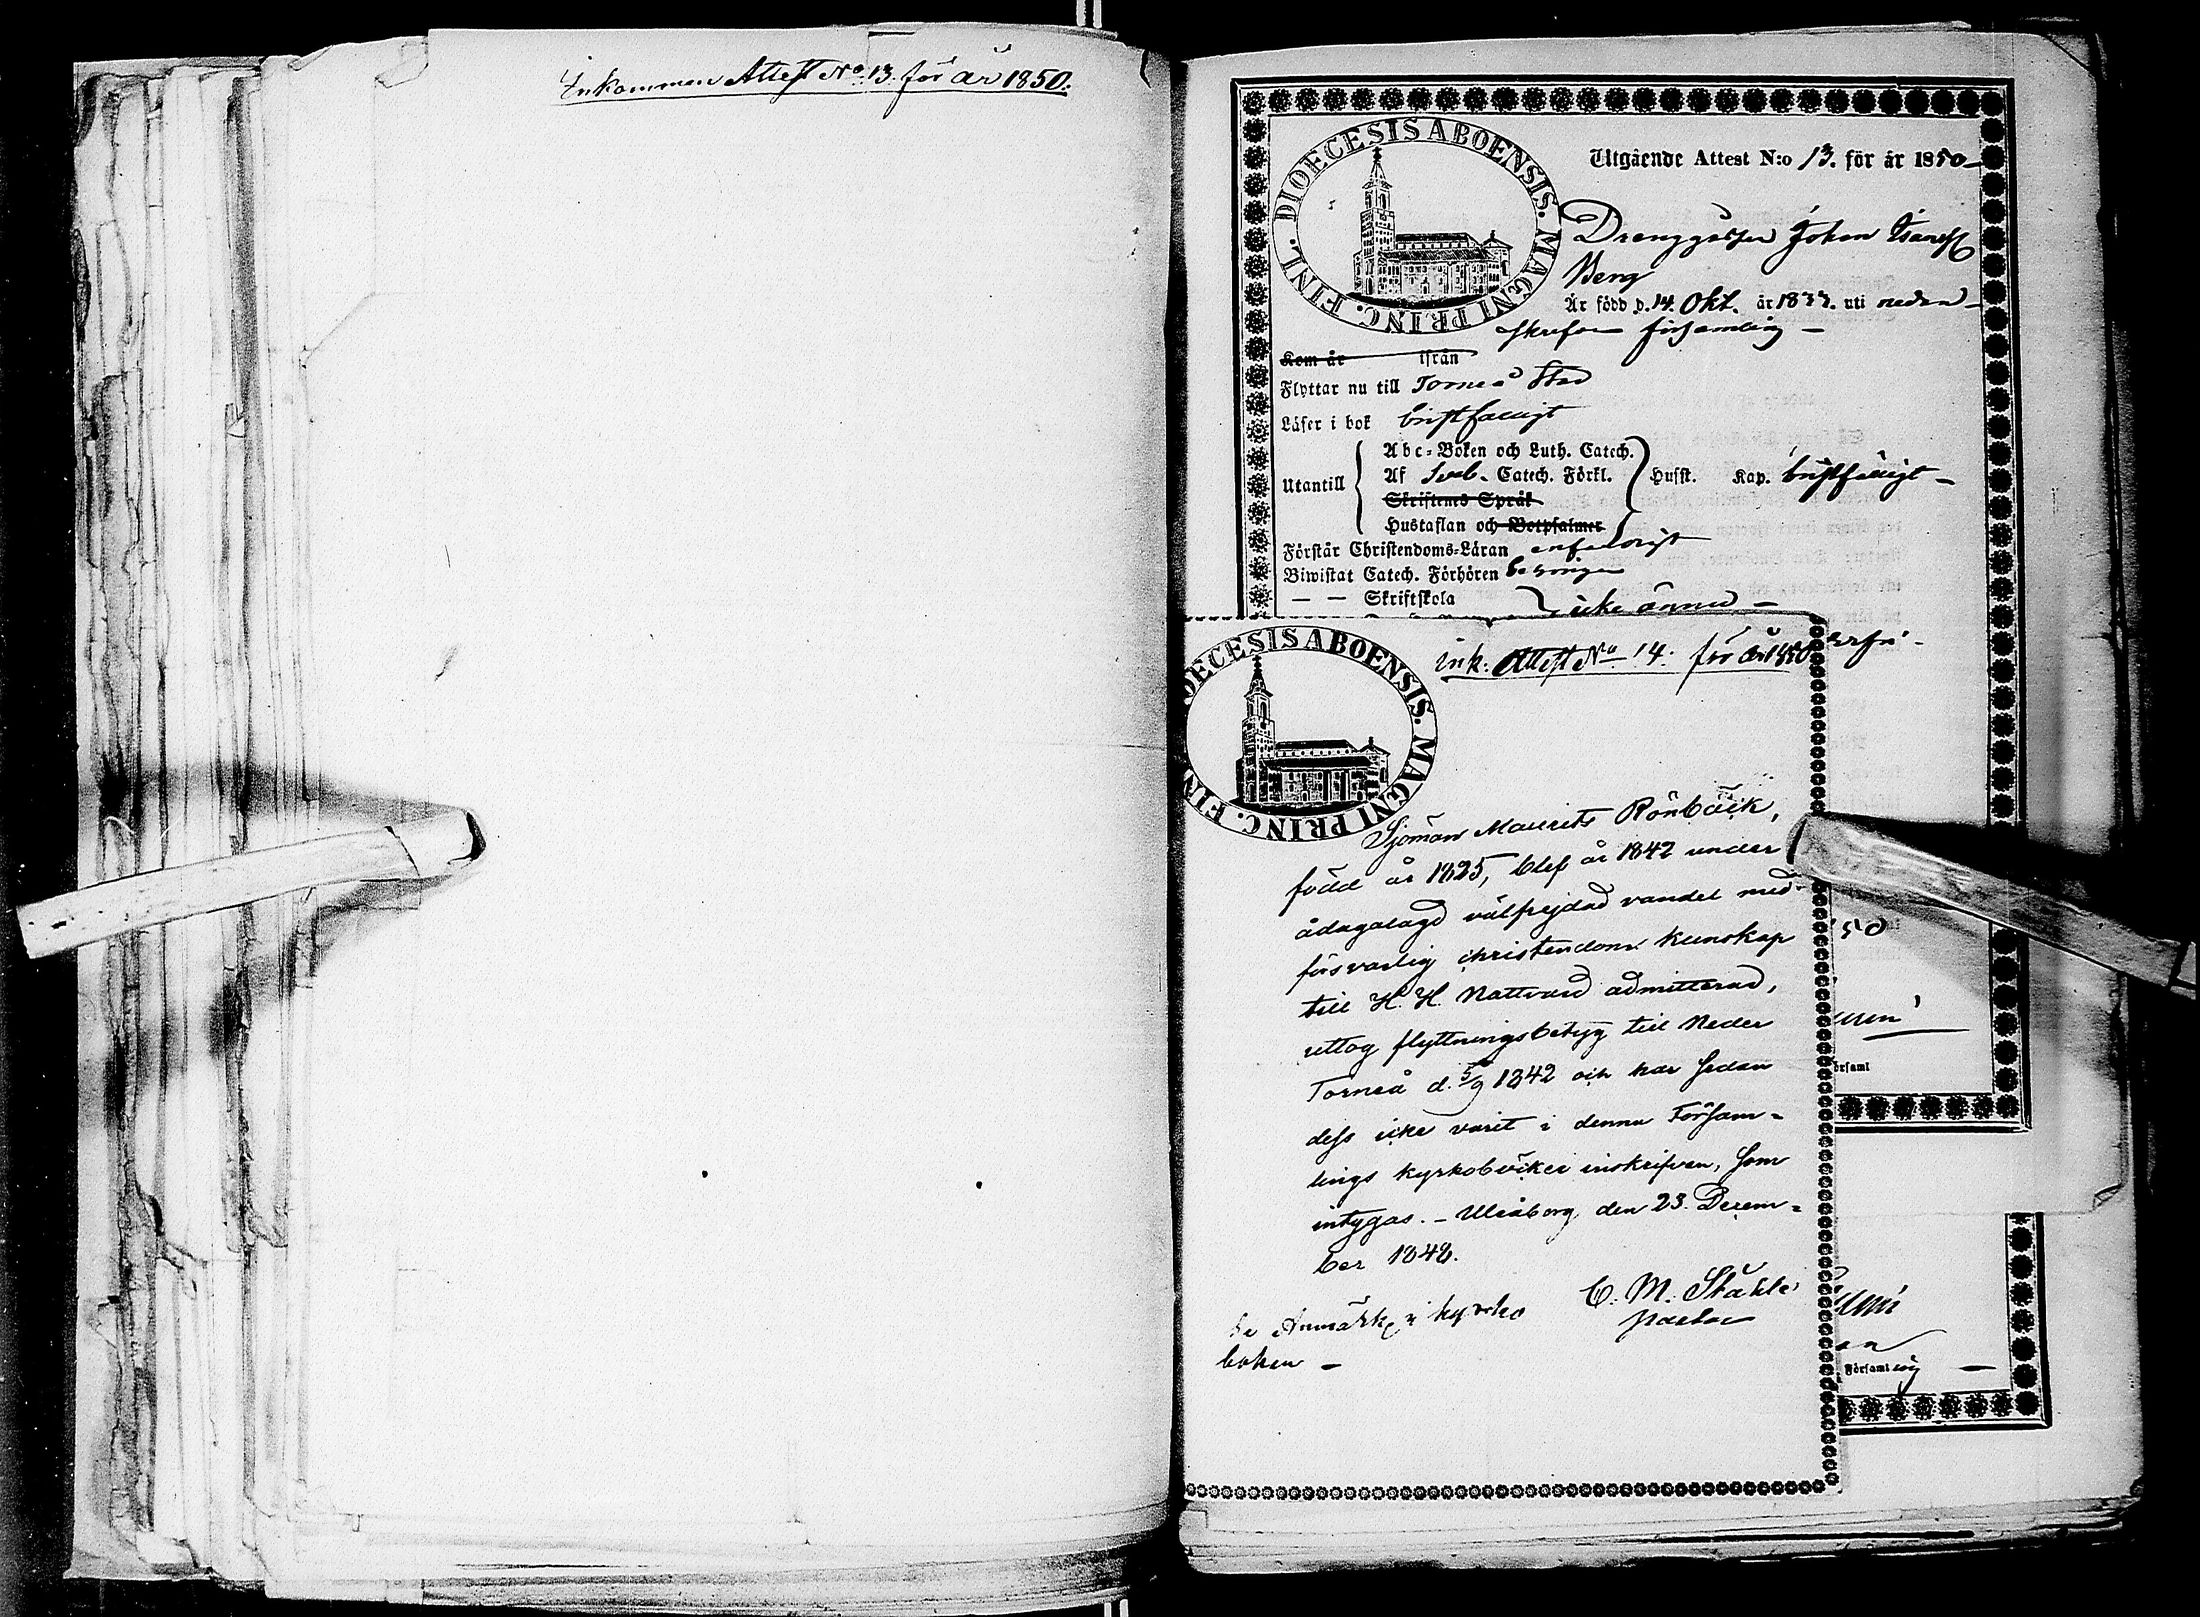 Inkommen Attest No 13. för år 1850.
DIOECESIS ABOENSIS. MAGNI PRINC. FINL.
Utgående Attest N:o 13. för år 1850
Drenggåssen Johan
Berg
Är född d. 14. Okt. år 1833. uti nedan-
skrefne församling –
Kom år ifrån
Flyttar nu till Torneå Stad
Läser i bok bristfälligt
Abc-Boken och Luth. Catech.
Utantill Af Sveb. Catech. Förkl. Husst. Kap. bristfälligt –
Skriftenes Språk
Hustaflan och Botpsalmer
Förstår Christendoms-Läran enfaldigt
Biwistat Catech. Förhören
— — Skriftskola icke ännu –
DIOECESIS ABOENSIS. MAGNI PRINC. FIN
ink: Attest No 14. för år 1850
Sjöman Maurits Rönbäck,
född år 1825, blef år 1842 under
ådagalagd välfrejdad vandel med
försvarlig christendoms kunskap
till H. H. Nattvard admitterad,
uttog flyttningsbetyg till Neder
Torneå d. 5/9 1842 och har sedan
dess icke varit i denna Försam=
lings kyrkoböcker inskrifven, som
intygas. – Uleåborg den 23. Decem=
ber 1848.
C. M. Ståhle
pastor
Se Anmärk. i kyrko
boken –
50
örsaml
Församling –